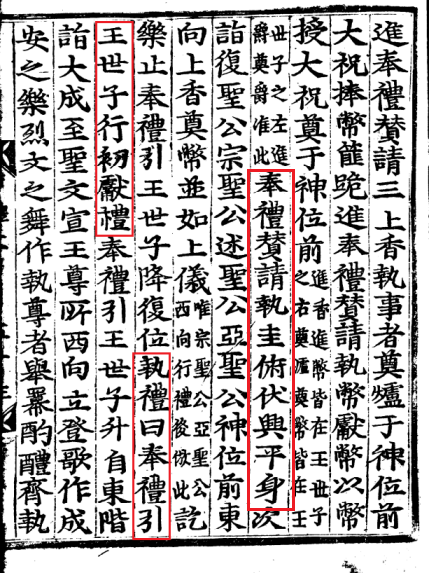 進奉禮賛請三上香執事者奠爐于神位前
大祝捧幣篚跪進奉禮賛請執幣獻幣以幣
授大祝奠于神位前進香進幣皆在王世子之右奠爐奠幣皆在王
世子之左進爵奠爵准此奉禮賛請執圭俯伏興平身次
詣復聖公宗聖公述聖公亞聖公神位前東
向上香奠幣並如上儀惟宗聖公亞聖公西向行禮後倣此訖
樂止奉禮引王世子降復位執禮曰奉禮引
王世子行初獻禮奉禮引王世子升自東階
詣大成至聖文宣王尊所西向立登歌作成
安之樂烈文之舞作執尊者舉冪酌醴齊執